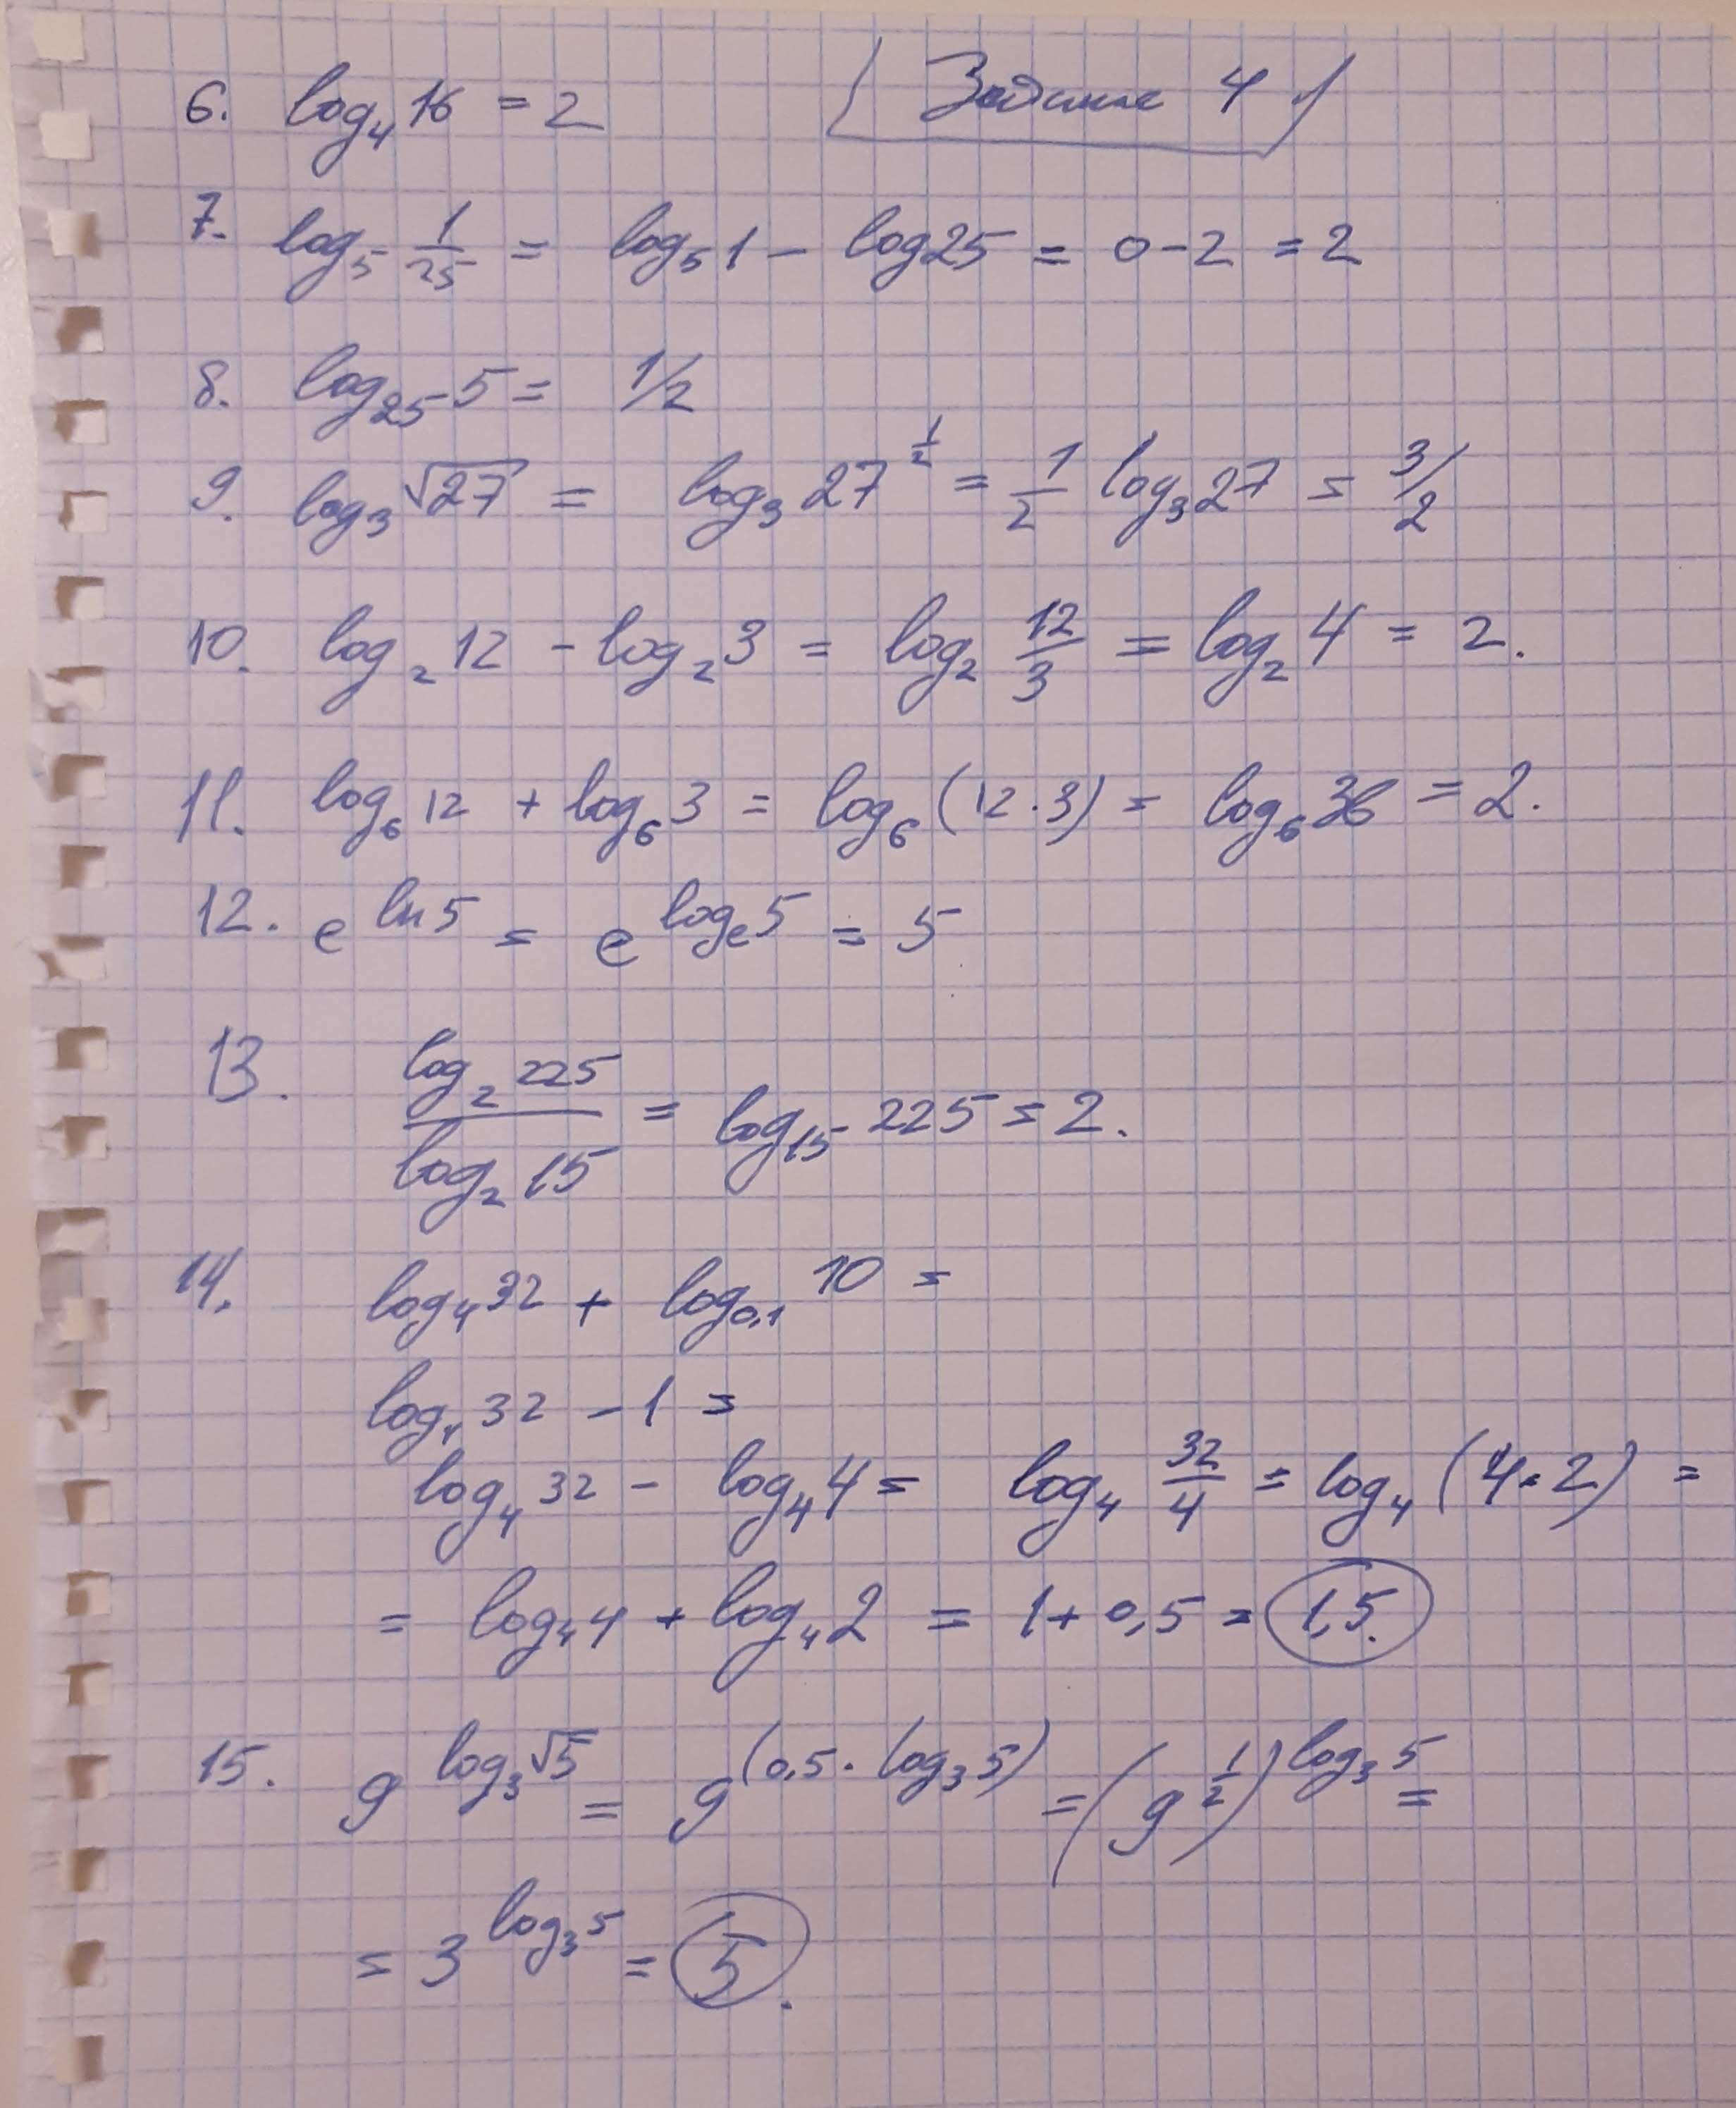 6. log₄16 = 2
Задание 4
7. log₅ 1/25 = log₅1 - log25 = 0-2 = 2
8. log₂₅5 = 1/2
9. log₃√27 = log₃27^(1/2) = 1/2 log₃27 = 3/2
10. log₂12 - log₂3 = log₂ 12/3 = log₂4 = 2.
11. log₆12 + log₆3 = log₆(12·3) = log₆36 = 2.
12. e^(ln5) = e^(logₑ5) = 5
13. log₂225 / log₂15 = log₁₅225 = 2.
14. log₄32 + log₀,₁10 =
log₄32 - 1 =
log₄32 - log₄4 = log₄ 32/4 = log₄(4·2) =
= log₄4 + log₄2 = 1+0,5 = 1,5.
15. 9^(log₃√5) = 9^(0,5·log₃5) = (9^(1/2))^(log₃5) =
= 3^(log₃5) = 5.